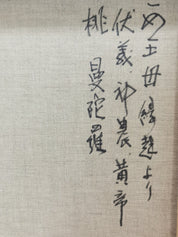 西王母より
伏羲、神農、黄帝
桃 曼陀羅